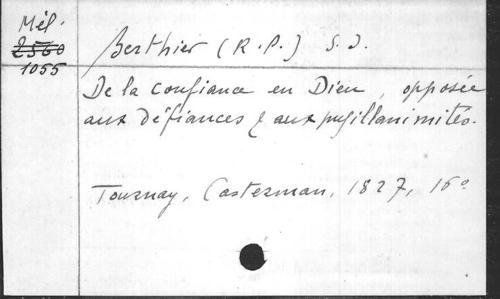 Mél.
2560
1055
Berthier (R.P.) S.J.
De la confiance en Dieu, opposée
aux défiances & aux pusillanimités.
Tournay, Casterman, 1827, 16°